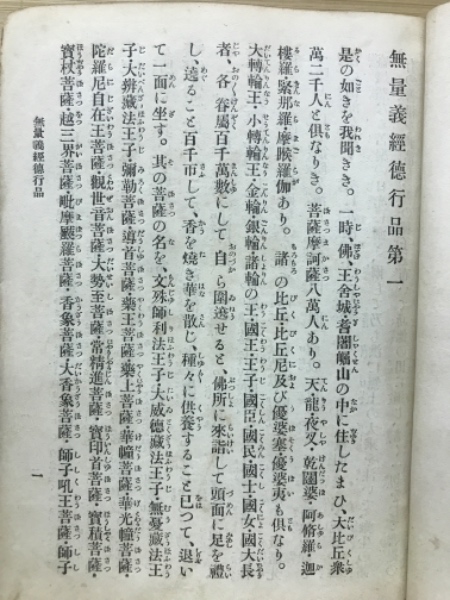 無量義經德行品第一
是の如きを我聞きき。一時、佛、王舍城・耆闍崛山の中に住したまひ、大比丘衆
萬二千人と俱なりき。菩薩摩訶薩八萬人あり。天・龍・夜叉・乾闥婆・阿脩羅・迦
樓羅・緊那羅・摩睺羅伽あり。諸の比丘・比丘尼及び優婆塞・優婆夷も俱なりき。
大轉輪王・小轉輪王・金輪・銀輪・諸輪の王・國王・王子・國臣・國民・國士・國女・國大長
者、各眷屬百千萬數にして自ら圍遶せると、佛所に來詣して頭面に足を禮
し、遶ること百千帀して、香を燒き華を散じ、種々に供養すること已つて、退い
て一面に坐す。其の菩薩の名を、文殊師利法王子・大威德藏法王子・無憂藏法王
子・大辨藏法王子・彌勒菩薩・導首菩薩・藥王菩薩・藥上菩薩・華幢菩薩・華光幢菩薩・
陀羅尼自在王菩薩・觀世音菩薩・大勢至菩薩・常精進菩薩・寶印首菩薩・寶積菩薩・
寶杖菩薩・越三界菩薩・毗摩颰羅菩薩・香象菩薩・大香象菩薩・師子吼王菩薩・師子
無量義經德行品
一